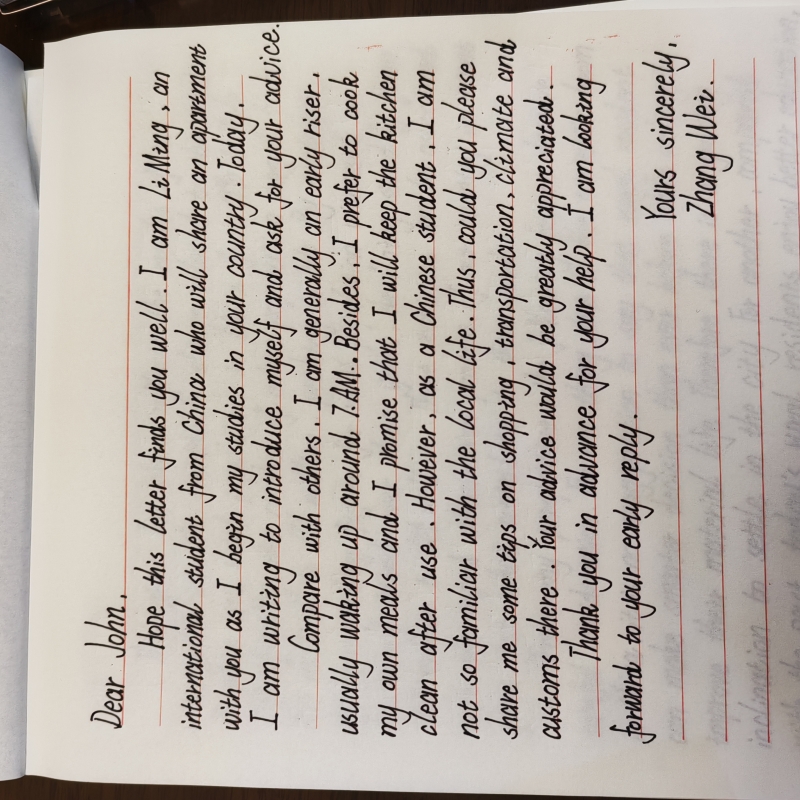 Dear John,
Hope this letter finds you well. I am Li Ming, an
international student from China who will share an apartment
with you as I begin my studies in your country. Today,
I am writing to introduce myself and ask for your advice.
Compare with others, I am generally an early riser,
usually waking up around 7.AM.. Besides, I prefer to cook
my own meals and I promise that I will keep the kitchen
clean after use. However, as a Chinese student, I am
not so familiar with the local life. Thus, could you please
share me some tips on shopping, transportation, climate and
customs there. Your advice would be greatly appreciated.
Thank you in advance for your help. I am looking
forward to your early reply.
Yours sincerely,
Zhang Wei.